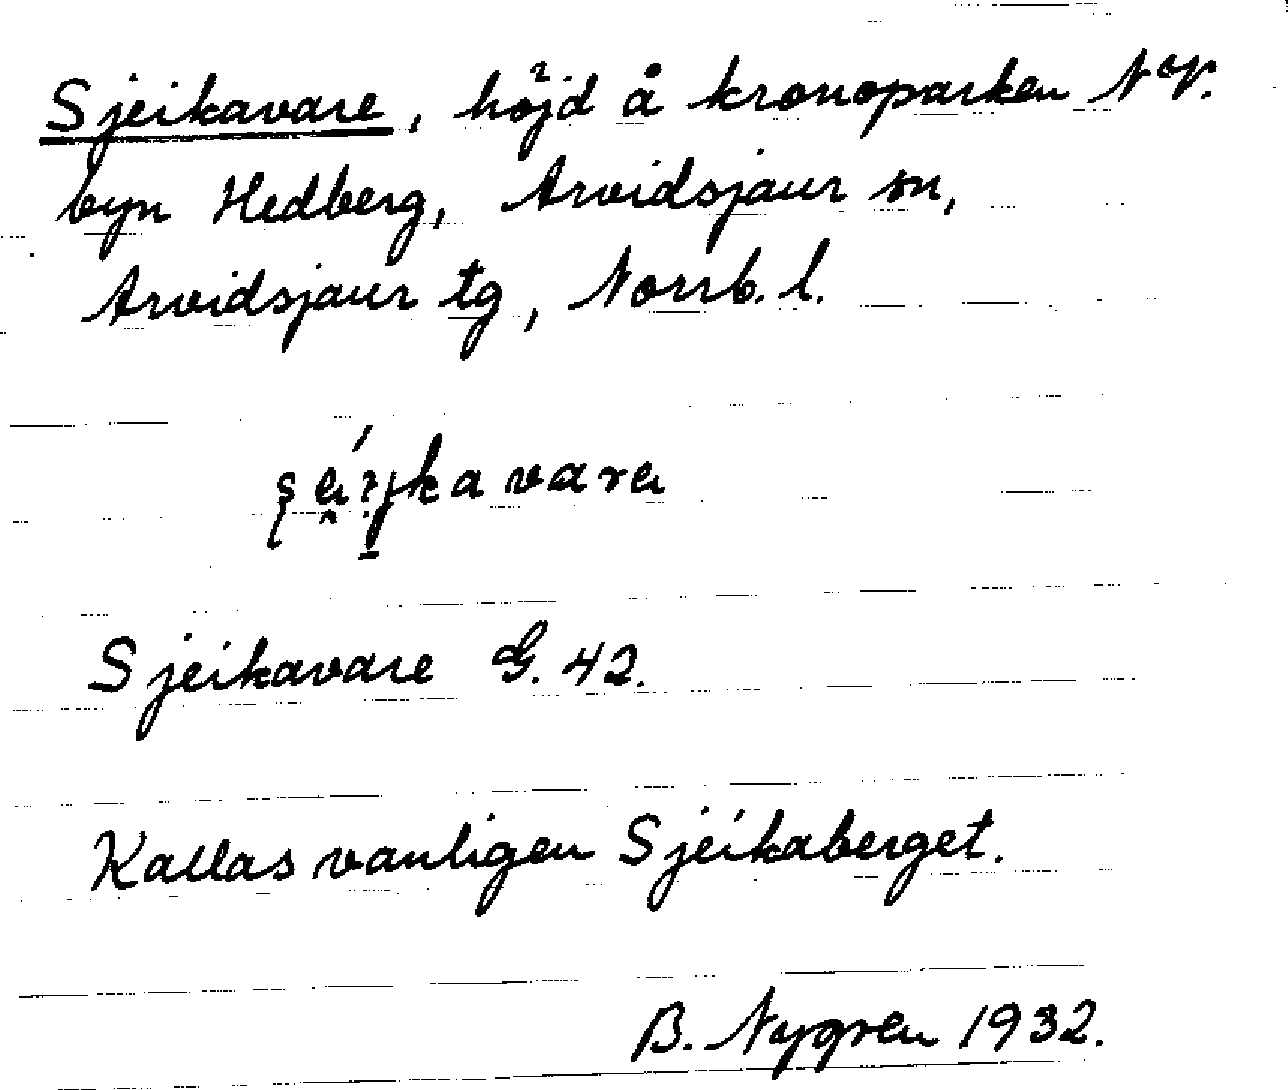 Sjeikavare, höjd å kronoparken N ov.
byn Hedberg, Arvidsjaur sn,
Arvidsjaur tg, Norrb. l.
Sjeikavare G. 42.
Kallas vanligen Sjeikaberget.
B. Nygren 1932.